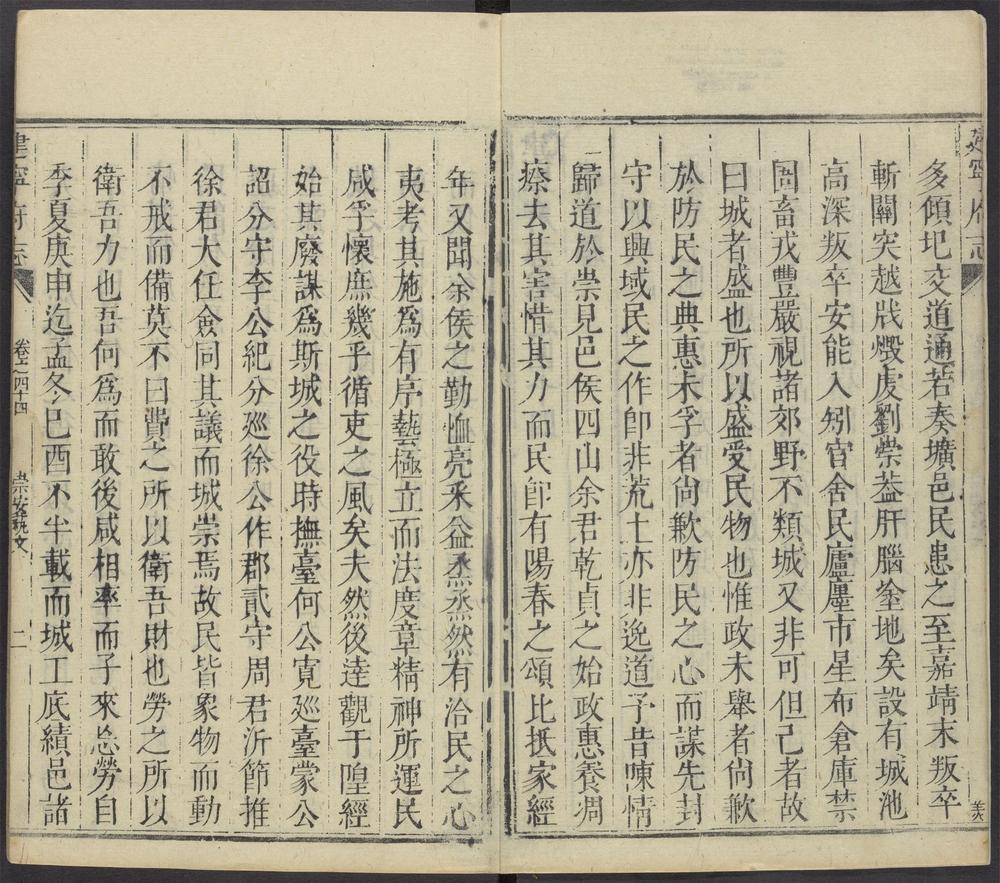 建寧府志
多傾圯交道通若奏壙邑民患之至嘉靖末叛卒
斬關突越戕燬虔劉崇葢肝腦塗地矣設有城池
高深叛卒安能入矧官舍民廬廛市星布倉庫禁
圄畜戎豐嚴視諸郊野不類城又非可但已者故
曰城者盛也所以盛受民物也惟政未舉者尚歉
於防民之典惠未孚者尚歉防民之心而謀先封
守以興域民之作卽非荒土亦非逸道予昔陳情
歸道於崇見邑侯四山余君乾貞之始政惠養凋
瘵去其害惜其力而民卽有陽春之頌比抵家經
年又聞余侯之勤恤亮采益烝烝然有洽民之心
夷考其施爲有序藝極立而法度章精神所運民
咸孚懷庶幾乎循吏之風矣夫然後逹觀于隍經
始其廢謀爲斯城之役時撫臺何公寬廵臺蒙公
詔分守李公紀分廵徐公作郡貳守周君沂節推
徐君大任僉同其議而城崇焉故民皆象物而動
不戒而備莫不曰費之所以衛吾財也勞之所以
衛吾力也吾何爲而敢後咸相率而子來忘勞自
季夏庚申迄孟冬巳酉不半載而城工底績邑諸
建寧府志
卷之四十四
崇安藝文
二